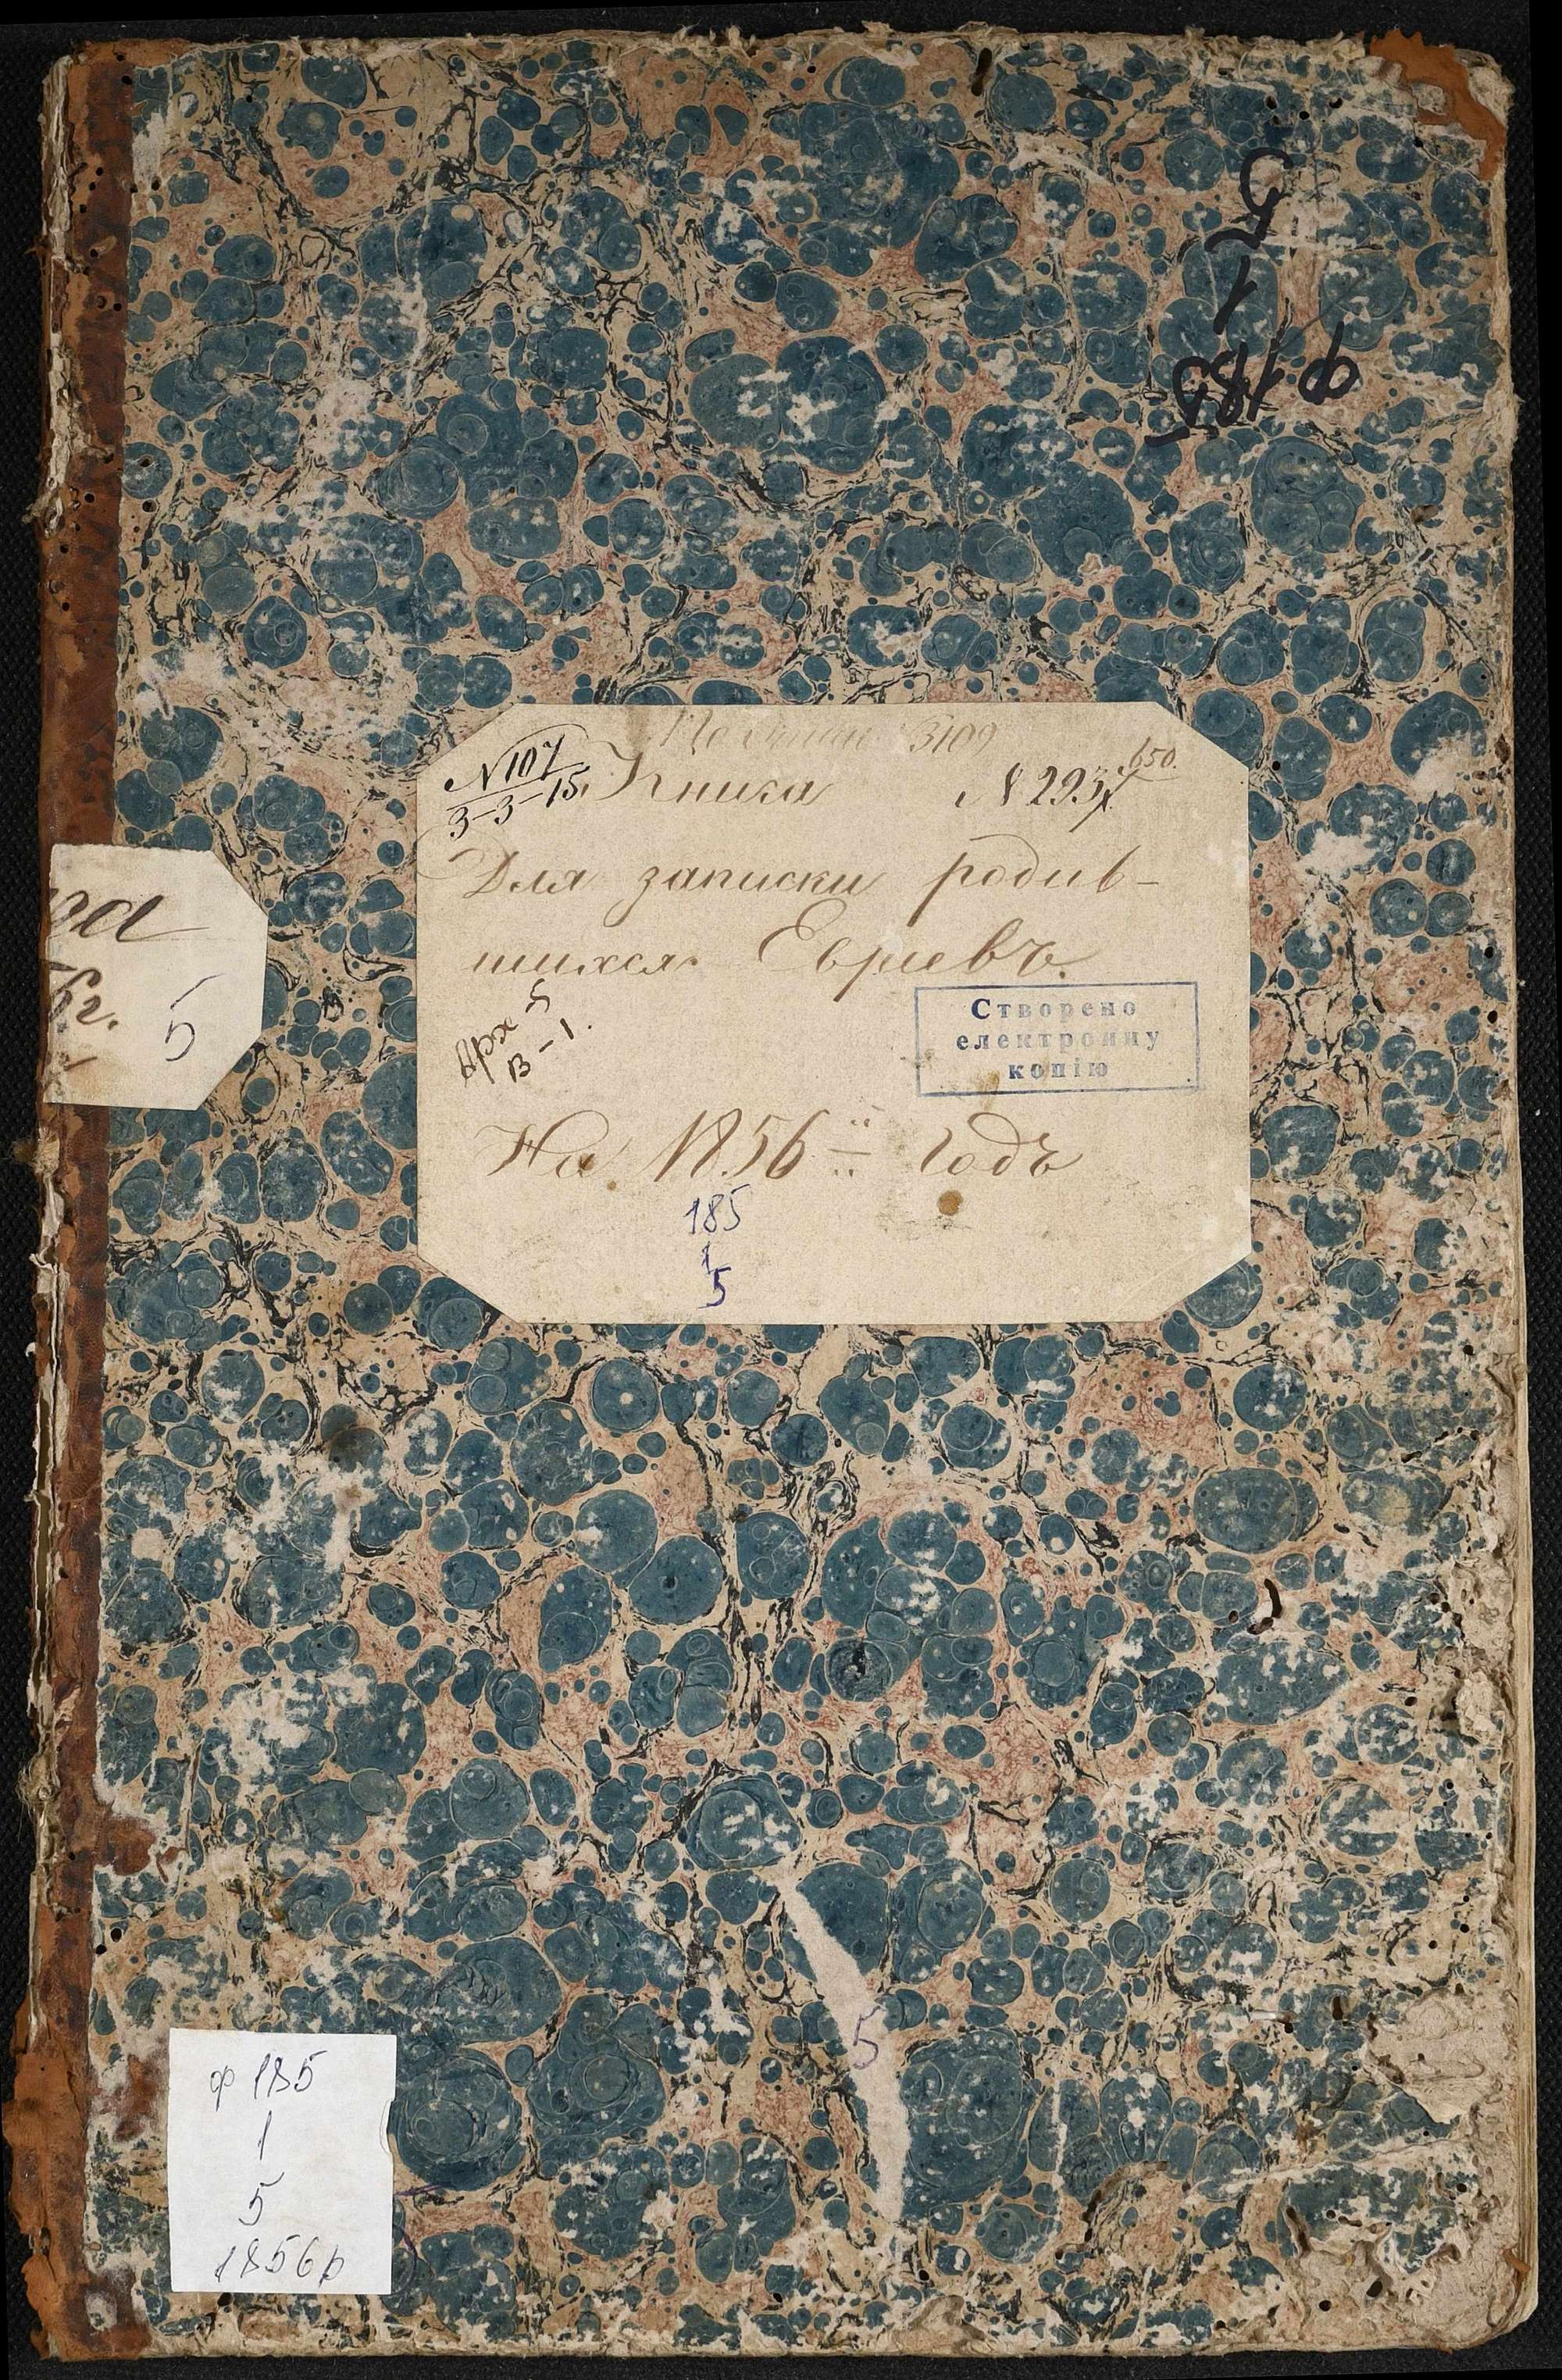 5
1
ф 185
3109
№ 107
3-3-15
Книга № 2937
650.
Для записки родив-
шихся Евреевъ.
Арх-5
В-1.
Створено
електронну
копію
На 1856 й годъ
185
1
5
ода
6г.
5
5
ф 185
1
5
1856р